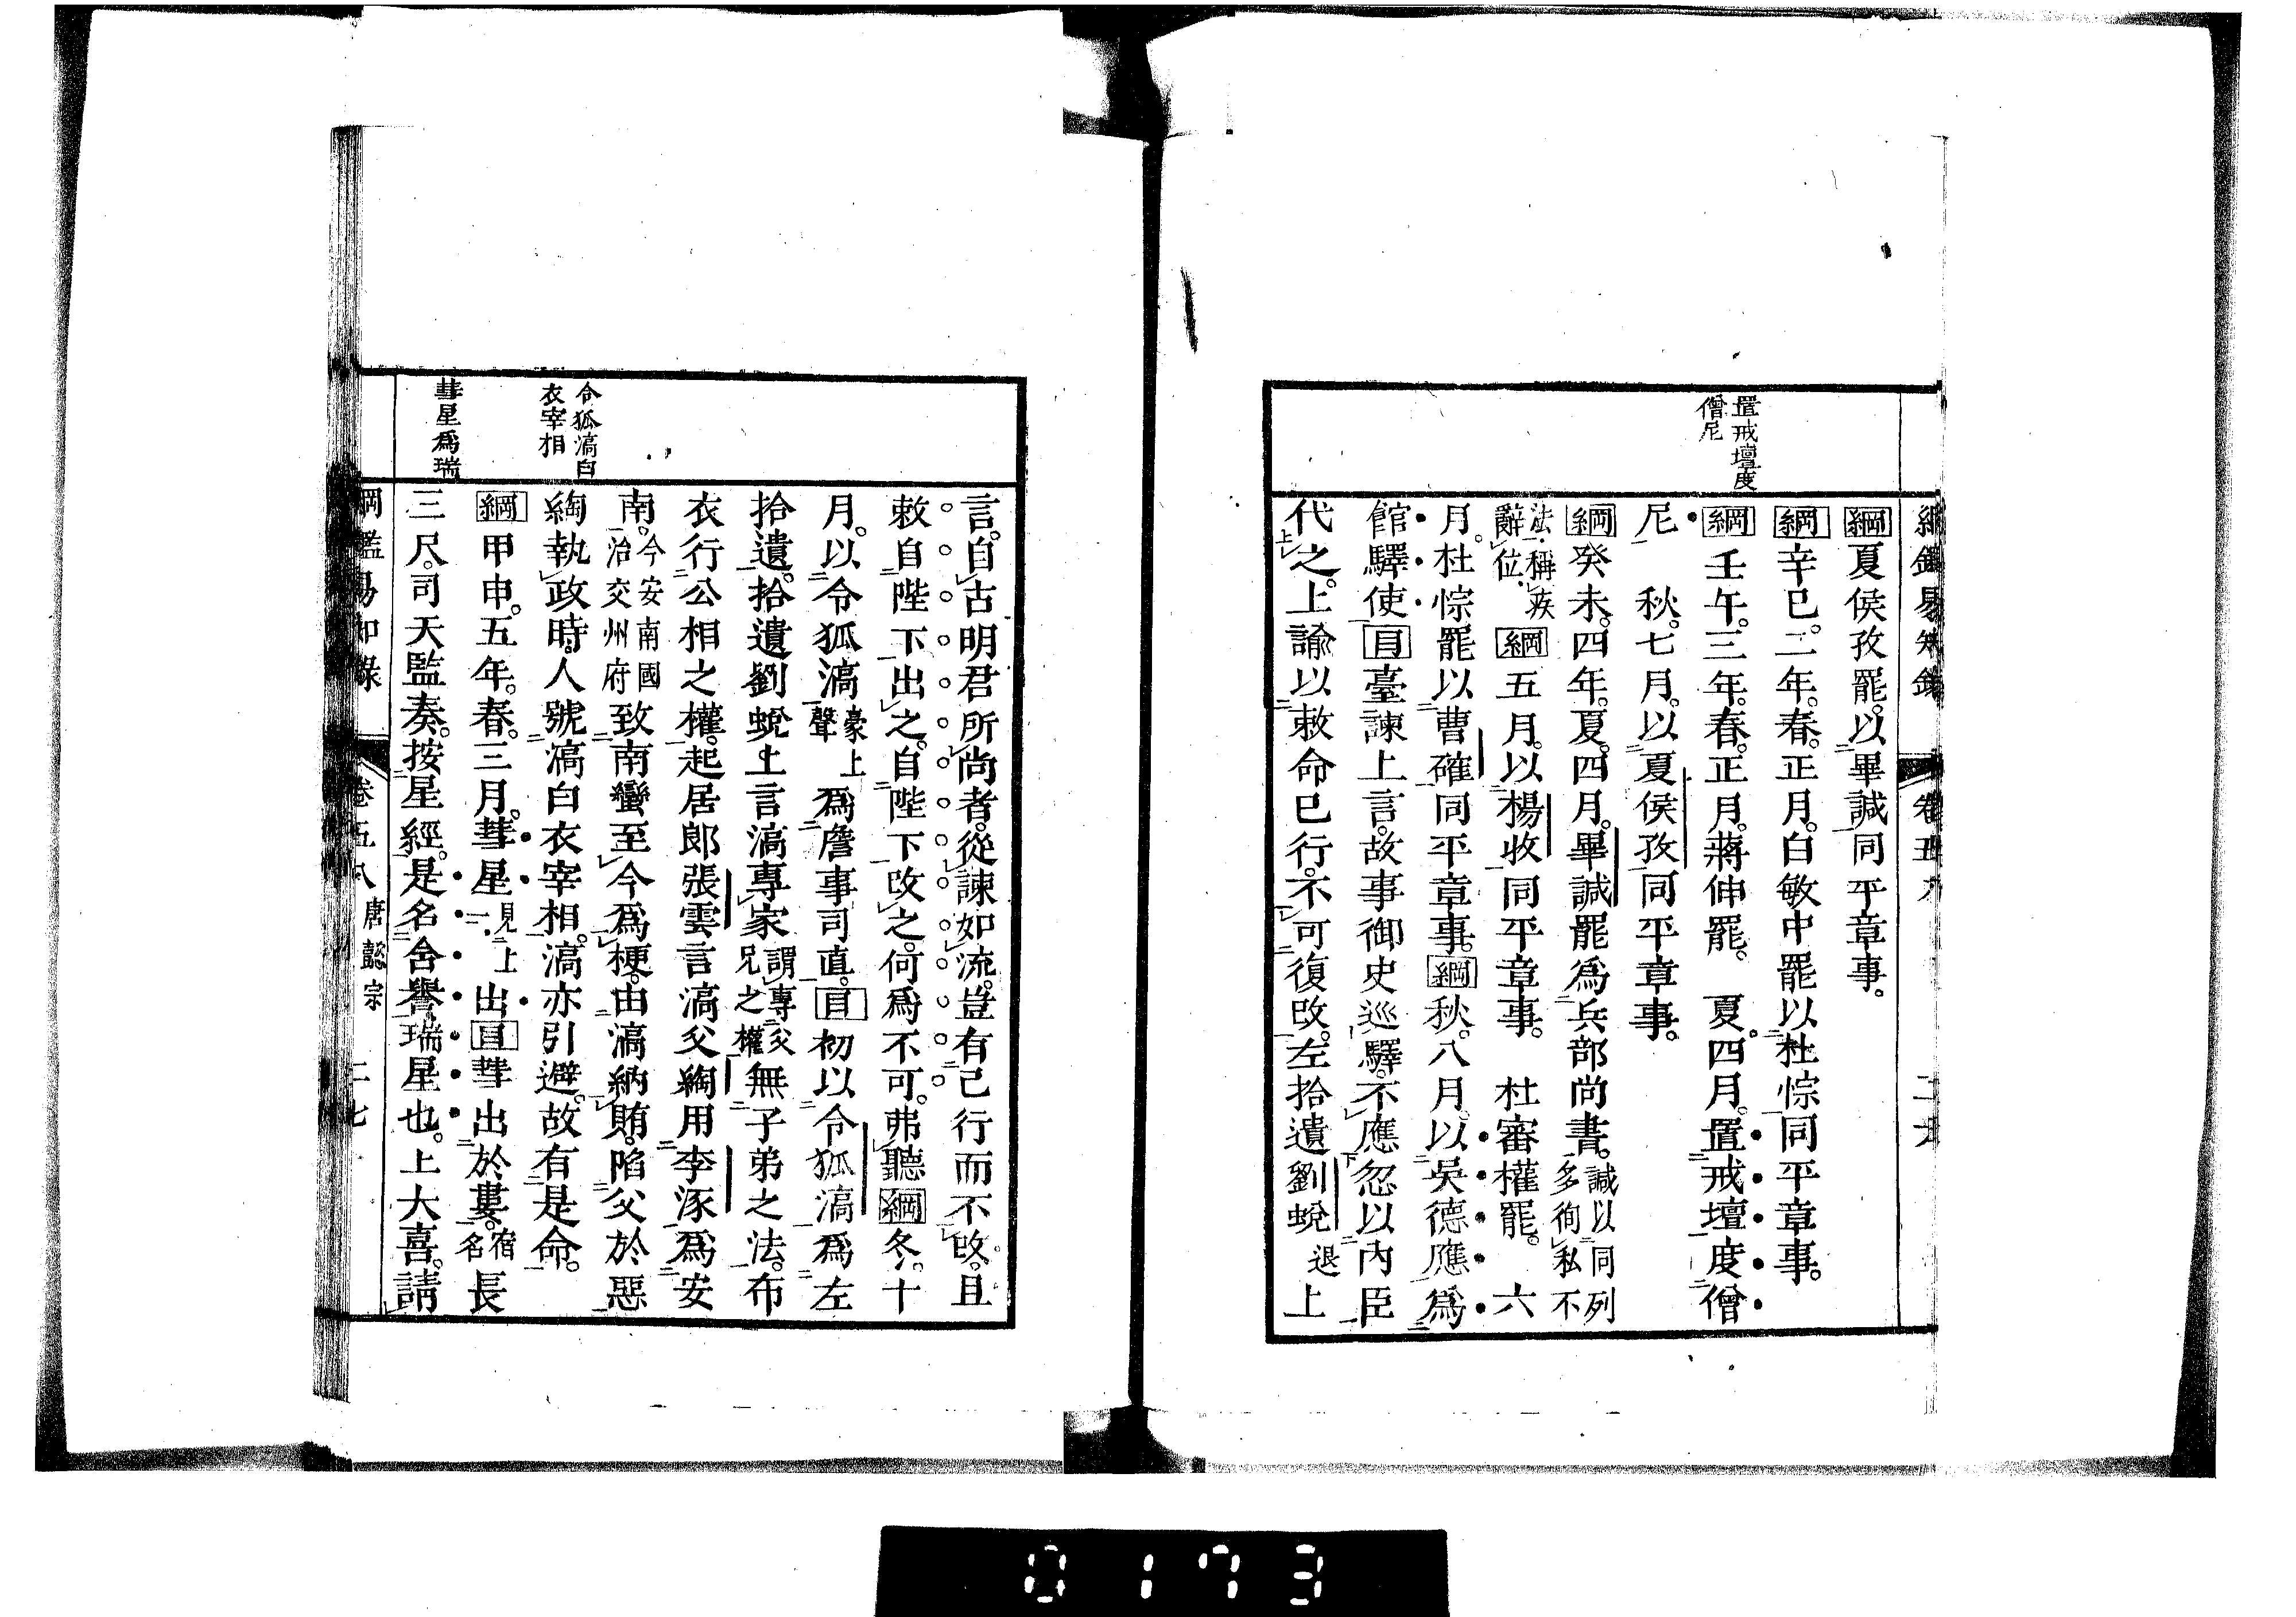 綱鑑易知錄 卷五八 二六
置戒壇度
僧尼
綱夏侯孜罷。以畢諴同平章事。
綱辛巳。二年。春。正月。白敏中罷以杜悰同平章事。
綱壬午。三年。春。正月。蔣伸罷。 夏。四月。置戒壇度僧
尼 秋。七月。以夏侯孜同平章事。
綱癸未。四年。夏。四月。畢諴罷爲兵部尚書。諴以同列多徇私不
法。稱疾辭位。綱五月。以楊收同平章事。 杜審權罷。 六
月。杜悰罷以曹確同平章事。綱秋。八月。以吳德應爲
館驛使目臺諫上言。故事御史巡驛。不應忽以內臣
代之。上諭以敕命已行。不可復改。左拾遺劉蛻退上
言。自古明君所尚者。從諫如流。豈有已行而不改。且
敕自陛下出之。自陛下改之。何爲不可。弗聽綱冬。十
月。以令狐滈豪上聲爲詹事司直。目初以令狐滈爲左
拾遺。拾遺劉蛻上言滈專家謂專父兄之權無子弟之法。布
衣行公相之權。起居郎張雲言滈父綯用李涿爲安
南。今安南國治交州府致南蠻至今爲梗。由滈納賄。陷父於惡
綯執政時。人號滈白衣宰相。滈亦引避。故有是命。
綱甲申。五年。春。三月。彗星見上出目彗出於婁。宿名長
三尺。司天監奏。按星經。是名含譽瑞星也。上大喜。請
令狐滈白
衣宰相
彗星爲瑞
綱鑑易知錄 卷五八 唐懿宗 二七
0173